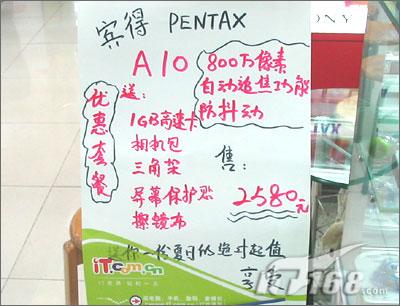 宾得 PENTAX
A10
800万像素
自动追焦功能
防抖动
优惠套餐
送:
1GB高速卡
相机包
三角架
屏幕保护贴
擦镜布
售:
2580元
送你一份夏日的绝对超值
享受
iT.com.cn
IT168.com
ONY